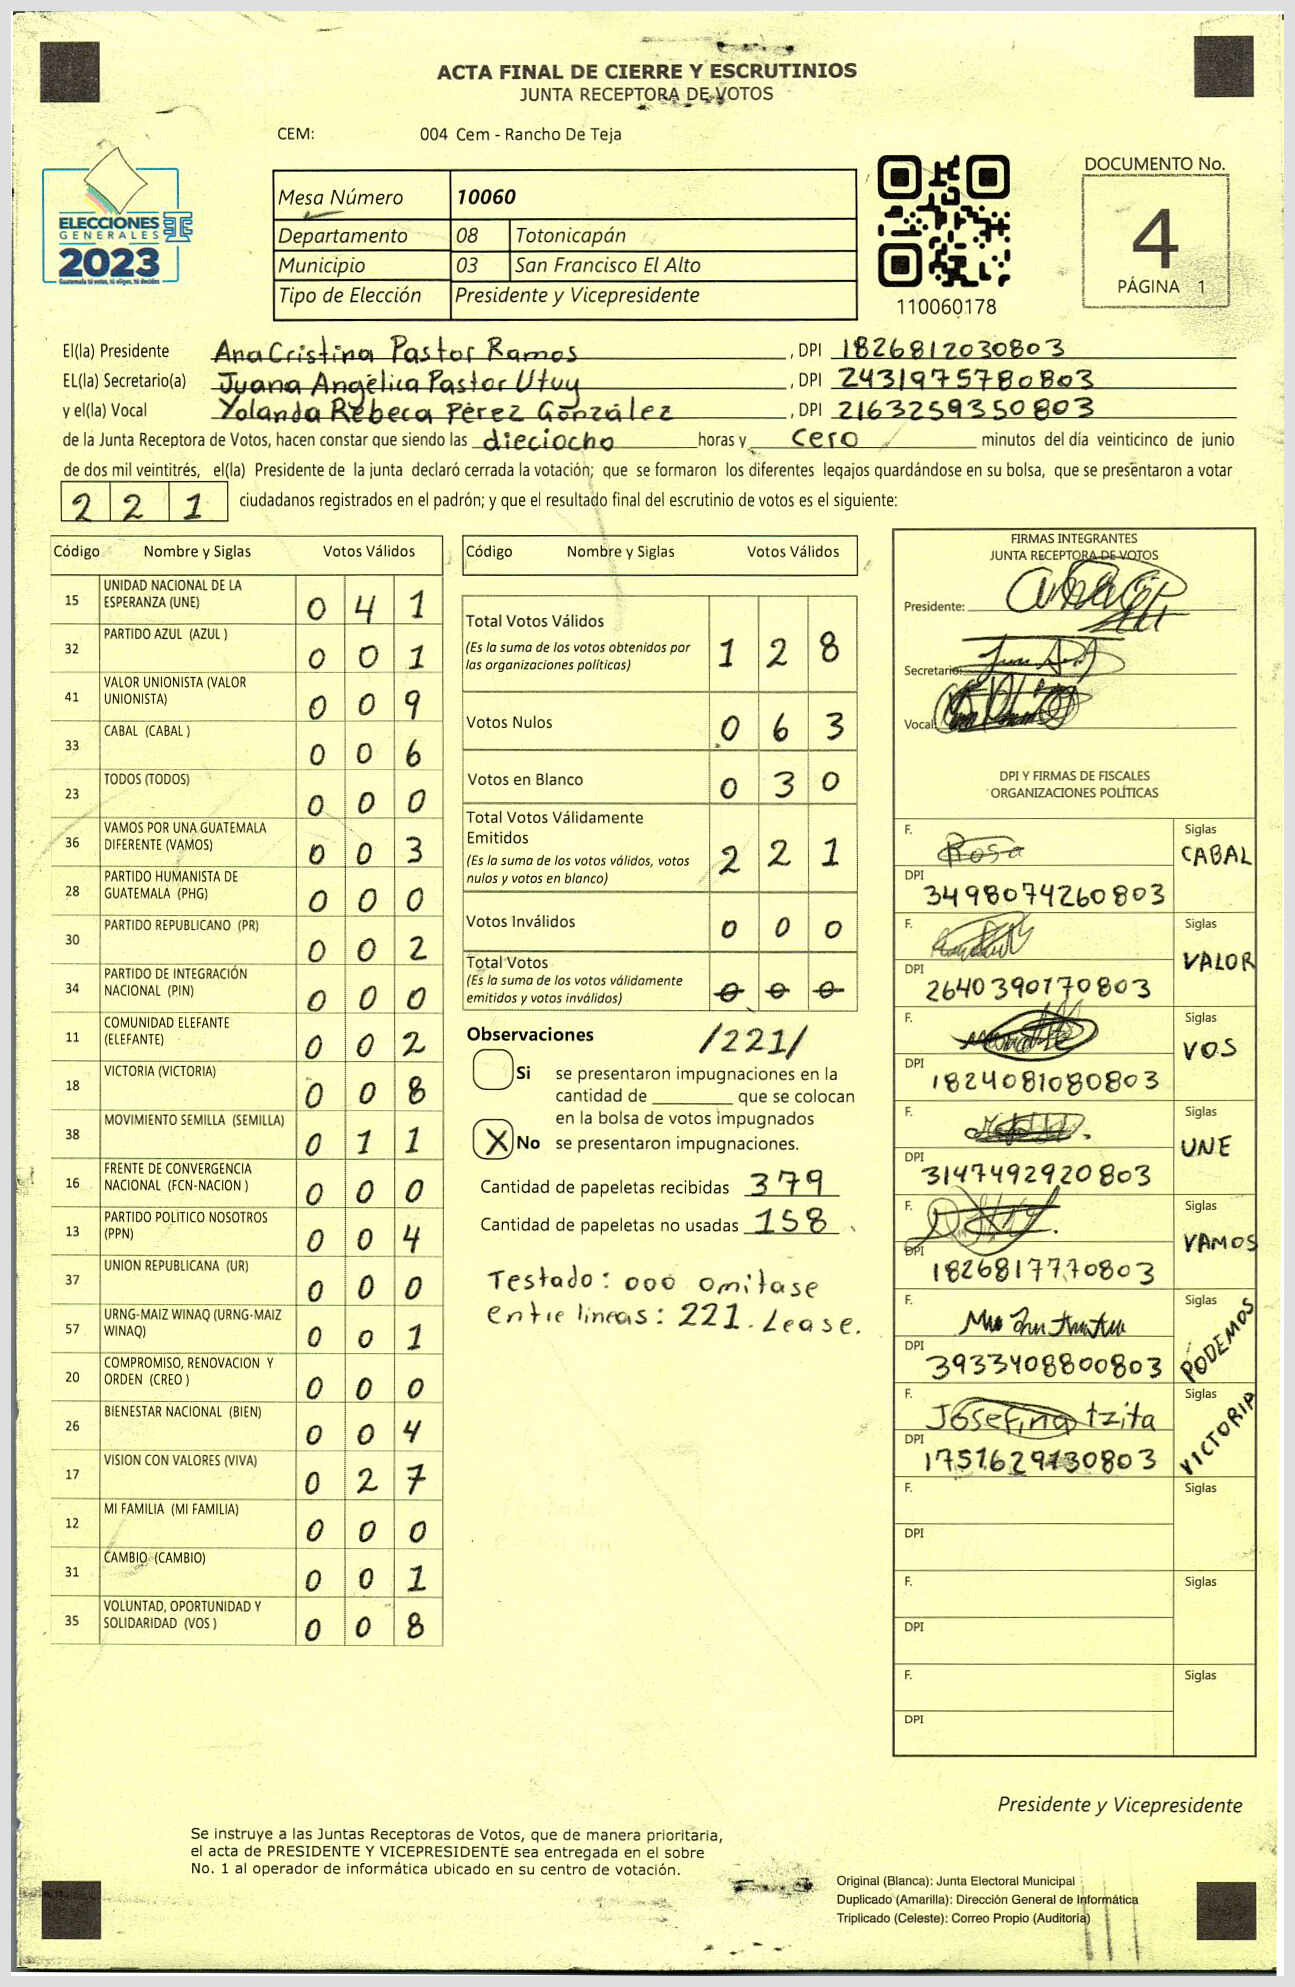 ACTA FINAL DE CIERRE Y ESCRUTINIOS
JUNTA RECEPTORA DE VOTOS
CEM: 004 Cem - Rancho De Teja
ELECCIONES
GENERALES
2023
Guatemala tú votas, tú eliges, tú decides
Mesa Número 10060
Departamento 08 Totonicapán
Municipio 03 San Francisco El Alto
Tipo de Elección Presidente y Vicepresidente
110060178
DOCUMENTO No.
4
PÁGINA 1
El(la) Presidente Ana Cristina Pastor Ramos, DPI 1826812030803
EL(la) Secretario(a) Juana Angélica Pastor Utuy, DPI 2431975780803
y el(la) Vocal Yolanda Rebeca Pérez González, DPI 2163259350803
de la Junta Receptora de Votos, hacen constar que siendo las dieciocho horas y cero minutos del día veinticinco de junio
de dos mil veintitrés, el(la) Presidente de la junta declaró cerrada la votación; que se formaron los diferentes legajos quardándose en su bolsa, que se presentaron a votar
2 2 1 ciudadanos registrados en el padrón; y que el resultado final del escrutinio de votos es el siguiente:
Código Nombre y Siglas Votos Válidos
15 UNIDAD NACIONAL DE LA
ESPERANZA (UNE) 0 4 1
32 PARTIDO AZUL (AZUL ) 0 0 1
41 VALOR UNIONISTA (VALOR
UNIONISTA) 0 0 9
33 CABAL (CABAL ) 0 0 6
23 TODOS (TODOS) 0 0 0
36 VAMOS POR UNA GUATEMALA
DIFERENTE (VAMOS) 0 0 3
28 PARTIDO HUMANISTA DE
GUATEMALA (PHG) 0 0 0
30 PARTIDO REPUBLICANO (PR) 0 0 2
34 PARTIDO DE INTEGRACIÓN
NACIONAL (PIN) 0 0 0
11 COMUNIDAD ELEFANTE
(ELEFANTE) 0 0 2
18 VICTORIA (VICTORIA) 0 0 8
38 MOVIMIENTO SEMILLA (SEMILLA) 0 1 1
16 FRENTE DE CONVERGENCIA
NACIONAL (FCN-NACION ) 0 0 0
13 PARTIDO POLITICO NOSOTROS
(PPN) 0 0 4
37 UNION REPUBLICANA (UR) 0 0 0
57 URNG-MAIZ WINAQ (URNG-MAIZ
WINAQ) 0 0 1
20 COMPROMISO, RENOVACION Y
ORDEN (CREO ) 0 0 0
26 BIENESTAR NACIONAL (BIEN) 0 0 4
17 VISION CON VALORES (VIVA) 0 2 7
12 MI FAMILIA (MI FAMILIA) 0 0 0
31 CAMBIO (CAMBIO) 0 0 1
35 VOLUNTAD, OPORTUNIDAD Y
SOLIDARIDAD (VOS ) 0 0 8
Código Nombre y Siglas Votos Válidos
Total Votos Válidos
(Es la suma de los votos obtenidos por
las organizaciones políticas) 1 2 8
Votos Nulos 0 6 3
Votos en Blanco 0 3 0
Total Votos Válidamente
Emitidos
(Es la suma de los votos válidos, votos
nulos y votos en blanco) 2 2 1
Votos Inválidos 0 0 0
Total Votos
(Es la suma de los votos válidamente
emitidos y votos inválidos) 0 0 0
Observaciones /221/
Si se presentaron impugnaciones en la
cantidad de ________ que se colocan
en la bolsa de votos impugnados
X No se presentaron impugnaciones.
Cantidad de papeletas recibidas 379
Cantidad de papeletas no usadas 158
Testado: 000 omitase
entre lineas: 221. Lease.
FIRMAS INTEGRANTES
JUNTA RECEPTORA DE VOTOS
Presidente:
Secretario:
Vocal:
DPI Y FIRMAS DE FISCALES
ORGANIZACIONES POLÍTICAS
F. Rosa Siglas CABAL
DPI 3498074260803
F. Siglas VALOR
DPI 2640390770803
F. Siglas VOS
DPI 1824081080803
F. Siglas UNE
DPI 3147492920803
F. Siglas VAMOS
DPI 1826817770803
F. Siglas PODEMOS
DPI 3933408800803
F. Josefina tzita Siglas VICTORIA
DPI 1751629130803
F. Siglas
DPI
F. Siglas
DPI
F. Siglas
DPI
Presidente y Vicepresidente
Se instruye a las Juntas Receptoras de Votos, que de manera prioritaria,
el acta de PRESIDENTE Y VICEPRESIDENTE sea entregada en el sobre
No. 1 al operador de informática ubicado en su centro de votación.
Original (Blanca): Junta Electoral Municipal
Duplicado (Amarilla): Dirección General de Informática
Triplicado (Celeste): Correo Propio (Auditoría)